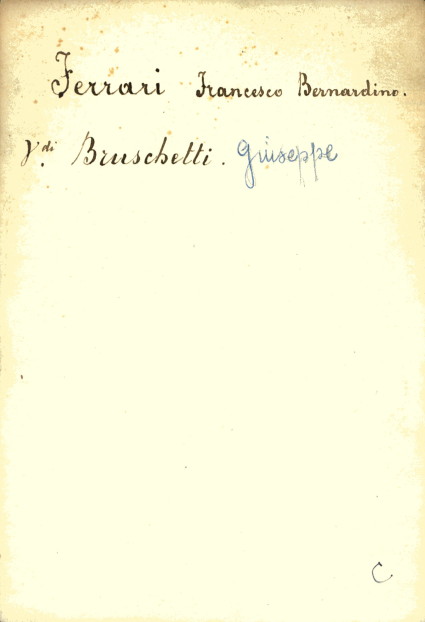 Ferrari Francesco Bernardino.
V.di Bruschetti. Giuseppe
C